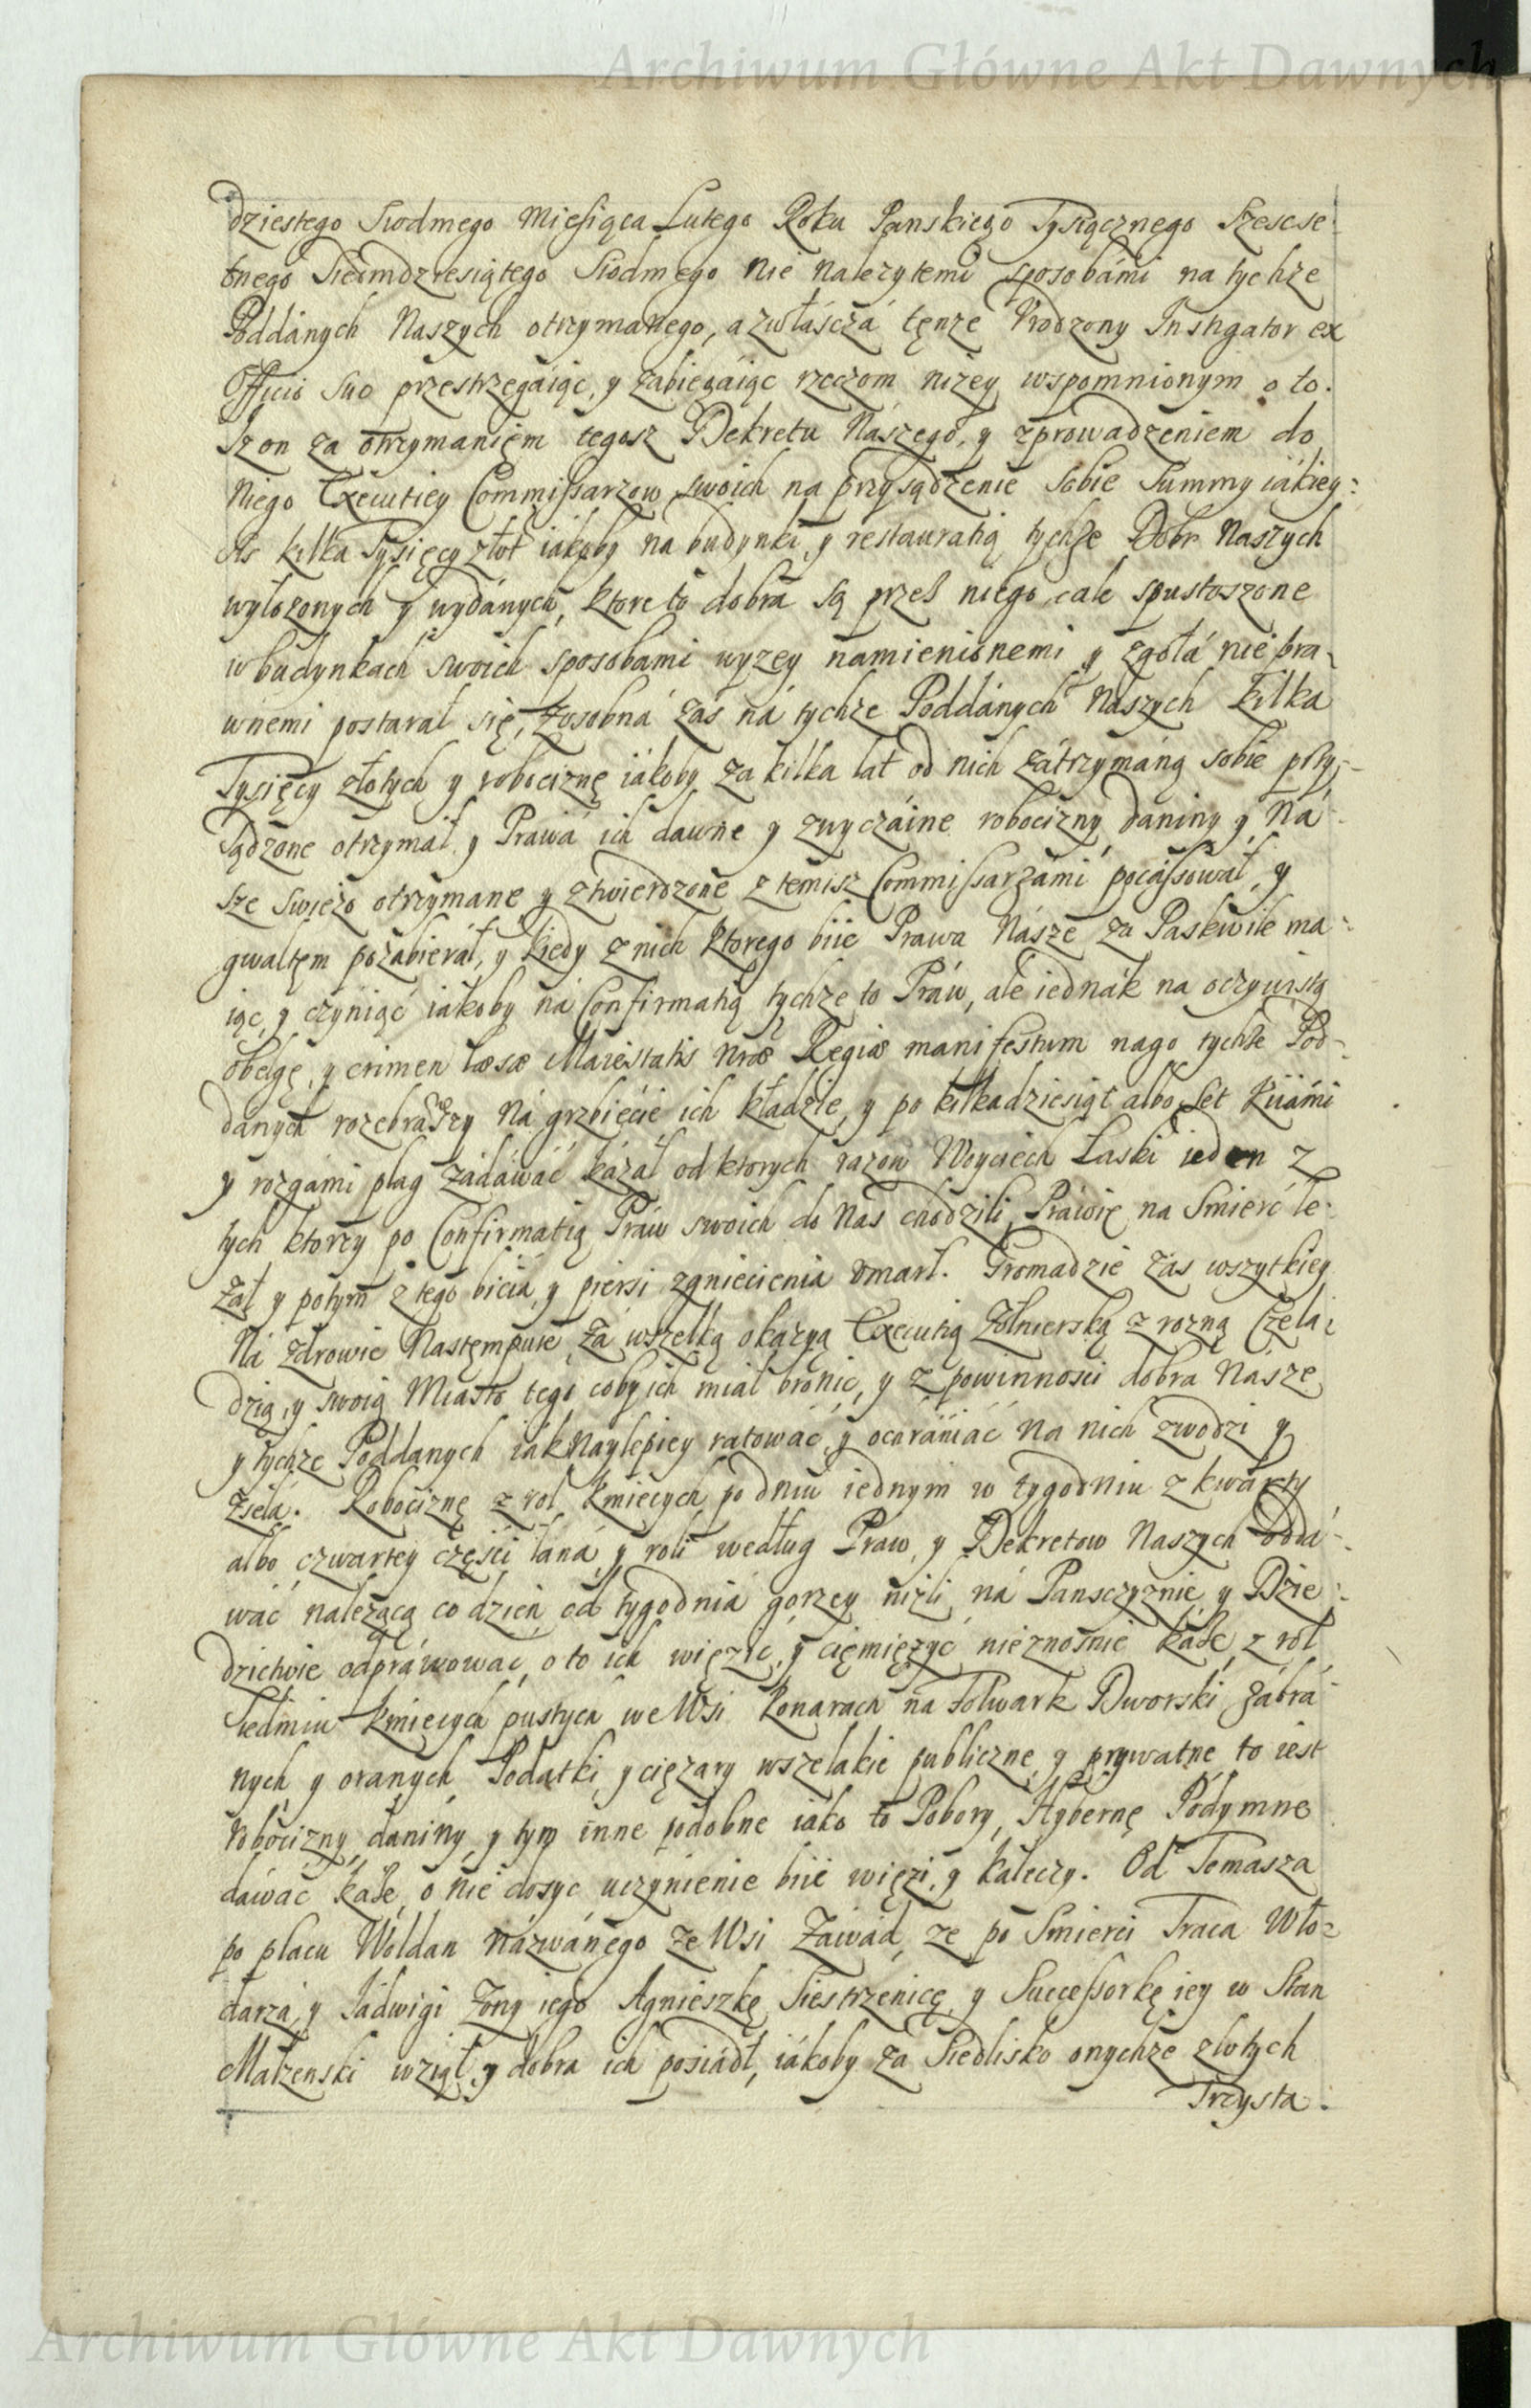 Archiwum Główne Akt Dawnych
dziestego Siodmego Miesiąca Lutego Roku Panskiego Tysiącznego Szescse-
tnego Siedmdziesiątego Siodmego nie nalezytemi sposobámi na tychze
Poddánych Naszych otrzymanego, a zwłásczá tęnze Vrodzony Instigator ex
Officio suo przestrzegáiąc, y zabiegáiąc rzeczom nizey wspomnionym o to.
Iz on za otrzymanięm tegosz Dekretu Nászego, y zprowadzeniem do
niego Executiey Commissarzow swoich na przysądzenie sobie Summy iákiey:
sis kilka Tysięcy złot iákoby na budynki, y restauratią tychze Dobr Naszych
wyłozonych y wydánych, ktore to dobra są przes niego cale spustoszone
w budynkach swoich sposobami wyzey namienionemi y zgołá nie pra-
wnemi postarał się, zosobná zás ná tychze Poddánych Naszych kilka
Tysięcy złotych y robociznę iákoby za kilka lat od nich zátrzymáną sobie przy-
sądzone otrzymał, y Prawá ich dawne y zwyczáine robocizny, daniny, y Ná-
sze swiezo otrzymane y ztwierdzone z temisz Commissarzámi pocássował, y
gwałtęm pozabierał, y kiedy z nich ktorego biie Prawa Násze za Paskwile ma-
iąc, y czyniąc iakoby ná Confirmatią tychze to Práw, ale iednák na oczywistą
obelgę, y crimen læsæ Maiestatis Nræ Regiæ manifestum nago tychze Pod-
danych rozebráwszy ná grzbięcie ich kładzie, y po kilkadziesiąt albo set kiiámi
y rozgámi plag zádáwáć kázał od ktorych razow Woyciech Łaski ieden z
tych ktorzy po Confirmatią Práw swoich do Nas chodzili, Práwię na Smierć le-
zał y potym z tego bicia, y piersi zgniecienia vmarł. Gromadzie zás wszytkiey
Ná zdrowie Nastęmpuie, zá wszelką okázyą Executią Zołnierską z rozną Czela-
dzią, y swoią Miásto tego coby ich miał bronic, y z powinnosci dobra Násze
y tychze Poddanych iák Naylepiey ratowáć, y ochrániáć na nich zwodzi y
zsela. Robociznę z rol kmiecych po dniu iednym w tygodniu z kwarty
albo czwartey części łaná y roli według Praw, y Dekretow Naszych oddá-
wáć nalezącą co dzień od tygodniá gorzey nizli ná Pansczyznie, y Dzie-
dzictwie odpráwowáć, o to ich więzić, y ciemięzyć nieznosnie káze, z rol
Siedmiu kmiecych pustych we Wsi Konarach na Folwark Dworski zábrá-
nych, y oranych Podatki, y cięzary wszelakie publiczne, y prywatne, to iest
robocizny, daniny, y tym inne podobne iako to Pobory, Hybernę Podymne
dawác káze, o nie dosyc uczynienie biie więzi, y káleczy. Od Tomasza
po placu Wołdan názwánego ze Wsi Záwád, ze po Smierci Traca Wło-
darzá, y Iadwigi Zony iego Agnieszkę Siestrzenicę, y Successorkę iey w Stan
Małzenski wziął, y dobra ich posiádł, iákoby za Siedlisko onychze złotych
Trzysta.
Archiwum Główne Akt Dawnych